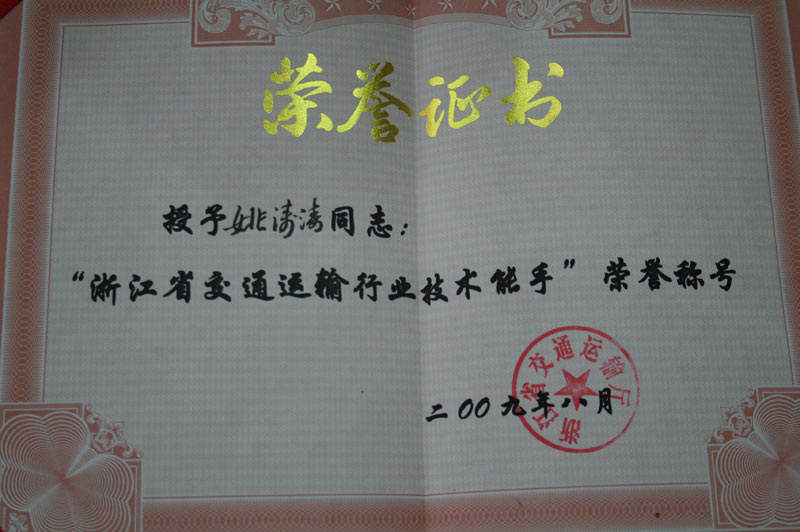 荣誉证书
授予姚涛涛同志：
“浙江省交通运输行业技术能手”荣誉称号
浙江省交通运输厅
二00九年八月